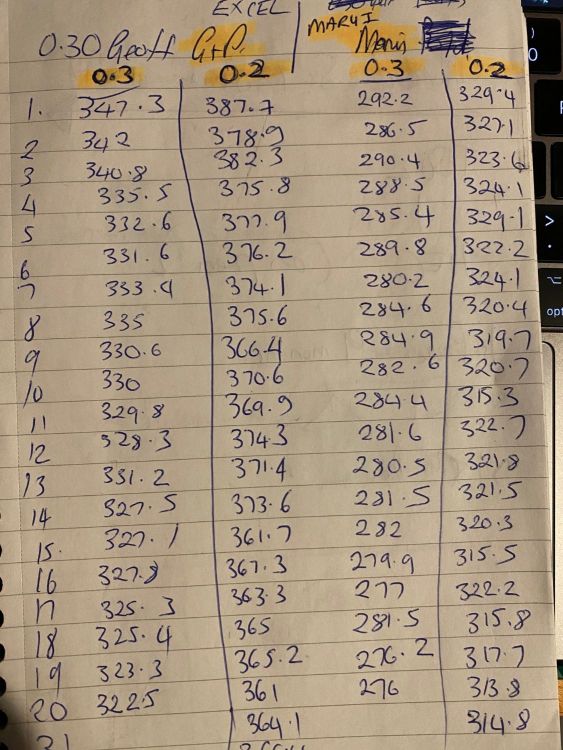 EXCEL
MARUI
0.30 Geoff G+P. Monis
0.3 0.2 0.3 0.2
1. 347.3 387.7 292.2 329.4
2 342 378.9 286.5 327.1
3 340.8 382.3 290.4 323.6
4 335.5 375.8 288.5 324.1
5 332.6 377.9 285.4 329.1
6 331.6 376.2 289.8 322.2
7 333.4 374.1 280.2 324.1
8 335 375.6 284.6 320.4
9 330.6 366.4 284.9 319.7
10 330 370.6 282.6 320.7
11 329.8 369.9 284.4 315.3
12 328.3 374.3 281.6 322.7
13 331.2 371.4 280.5 321.8
14 327.5 373.6 281.5 321.5
15. 327.1 361.7 282 320.3
16 327.8 367.3 279.9 315.5
17 325.3 363.3 277 322.2
18 325.4 365 281.5 315.8
19 323.3 365.2 276.2 317.7
20 322.5 361 276 313.8
21 364.1 314.8